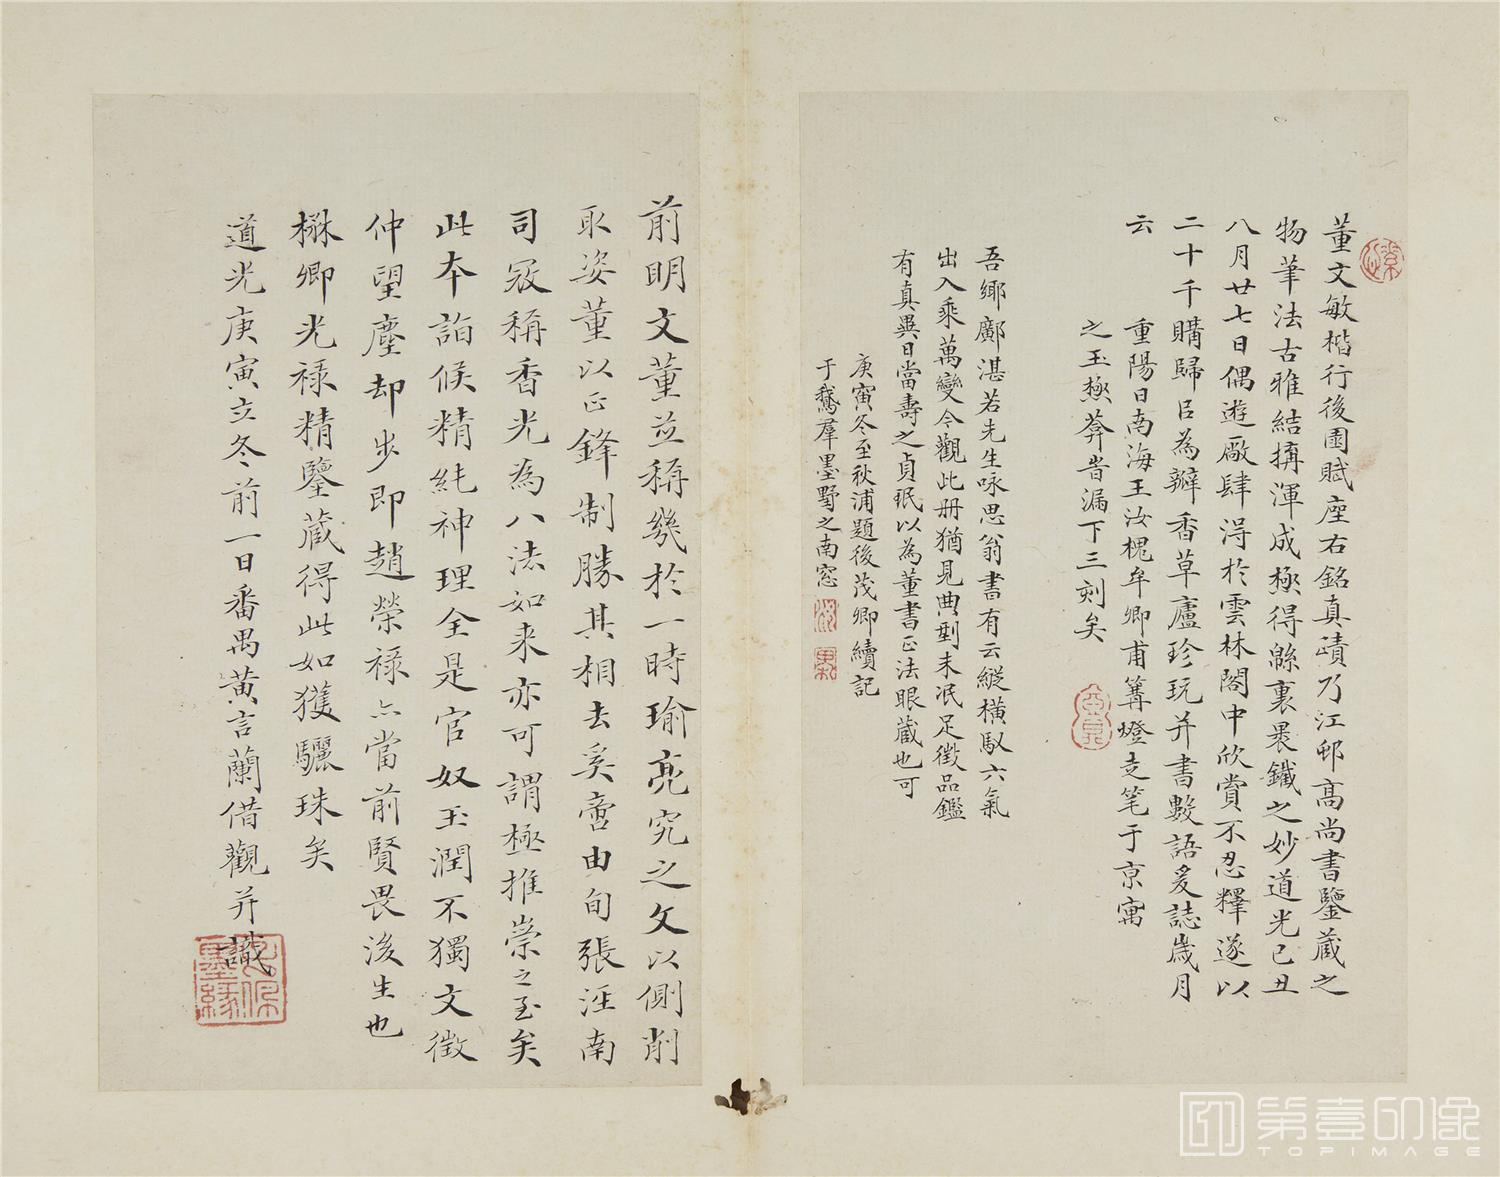 董文敏楷行後園賦座右銘真蹟乃江邨高尚書鑒藏之
物筆法古雅結搆渾成極得緜裏裹鐵之妙道光己丑
八月廿七日偶遊廠肆淂於雲林閣中欣賞不忍釋遂以
二十千購歸㠯為瓣香草廬珍玩并書數語爰誌歲月
云
重陽日南海王汝槐牟卿甫篝燈走笔于京寓
之玉極莾峕漏下三刻矣
吾鄉鄺湛若先生咏思翁書有云縱橫馭六氣
出入乘萬變今觀此册猶見典型未泯足徵品鑑
有真異日當壽之貞珉以為董書正法眼藏也可
庚寅冬至秋浦題後茂卿續記
于鵞羣墨墅之南窓
前明文董並稱幾於一時瑜亮究之文以側削
取姿董以正鋒制勝其相去奚啻由旬張泟南
司寇稱香光為八法如来亦可謂極推崇之至矣
此本詣候精純神理全是官奴玉潤不獨文徵
仲望塵却步即趙榮禄亦當前賢畏後生也
楙卿光禄精鑒藏得此如獲驪珠矣
道光庚寅立冬前一日番禺黄言蘭借觀并識
第壹印像
TOPIMAGE